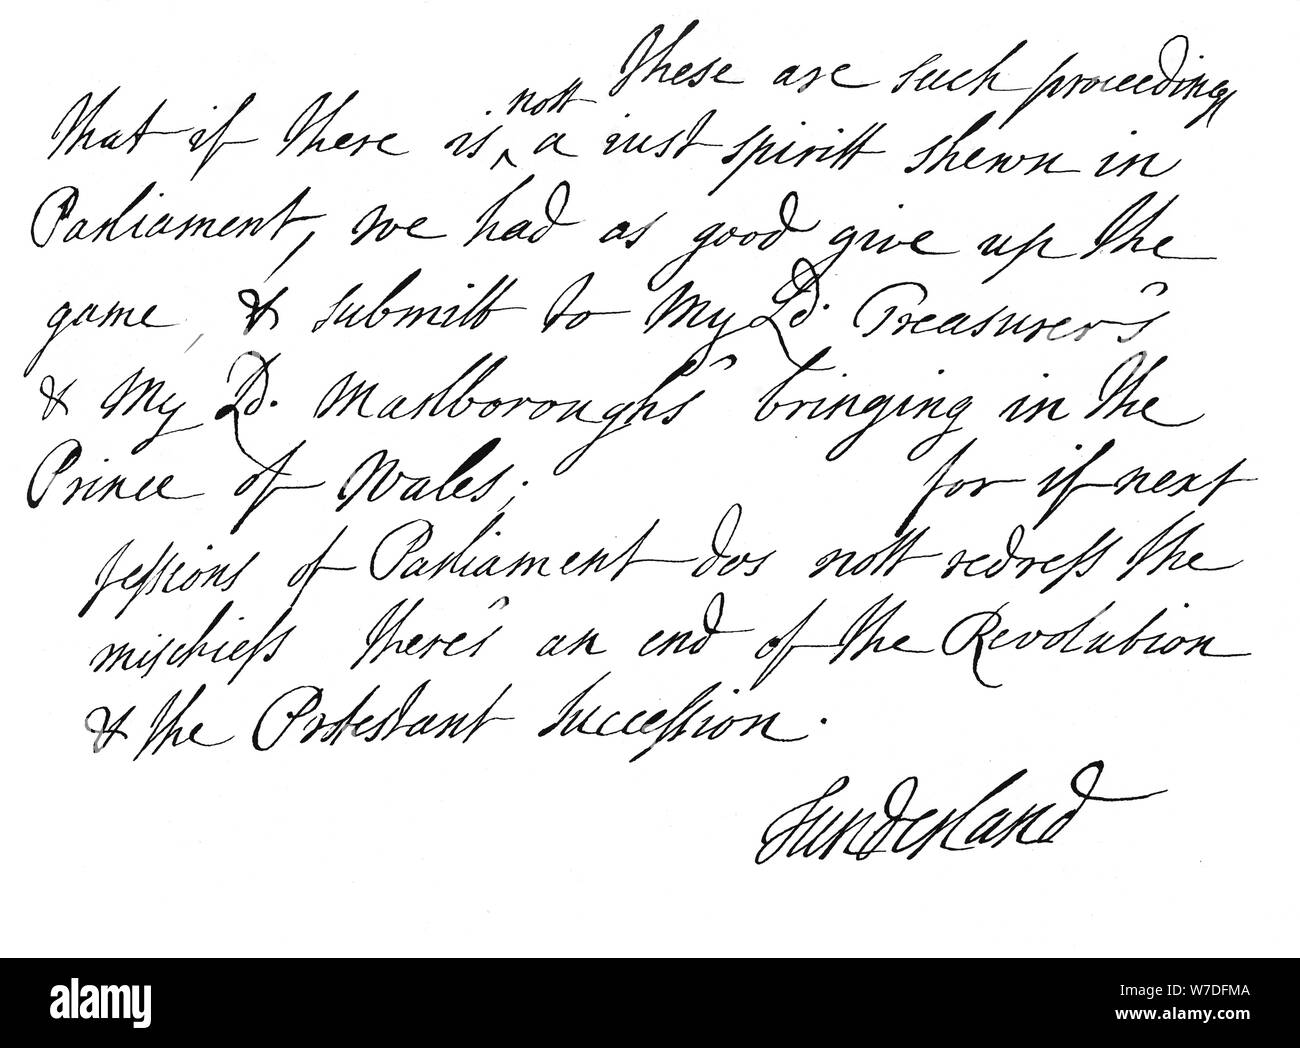 These are such proceedings
That if there is ^nott a iust spiritt shewn in
Parliament, we had as good give up the
game, & submitt to My Ld. Treasurer's
& My Ld. Marlborough's bringing in the
Prince of Wales; for if next
sessions of Parliament dos nott redress the
mischiefs there's an end of the Revolution
& the Protestant succession.
Sunderland
alamy
Image ID: W7DFMA
www.alamy.com